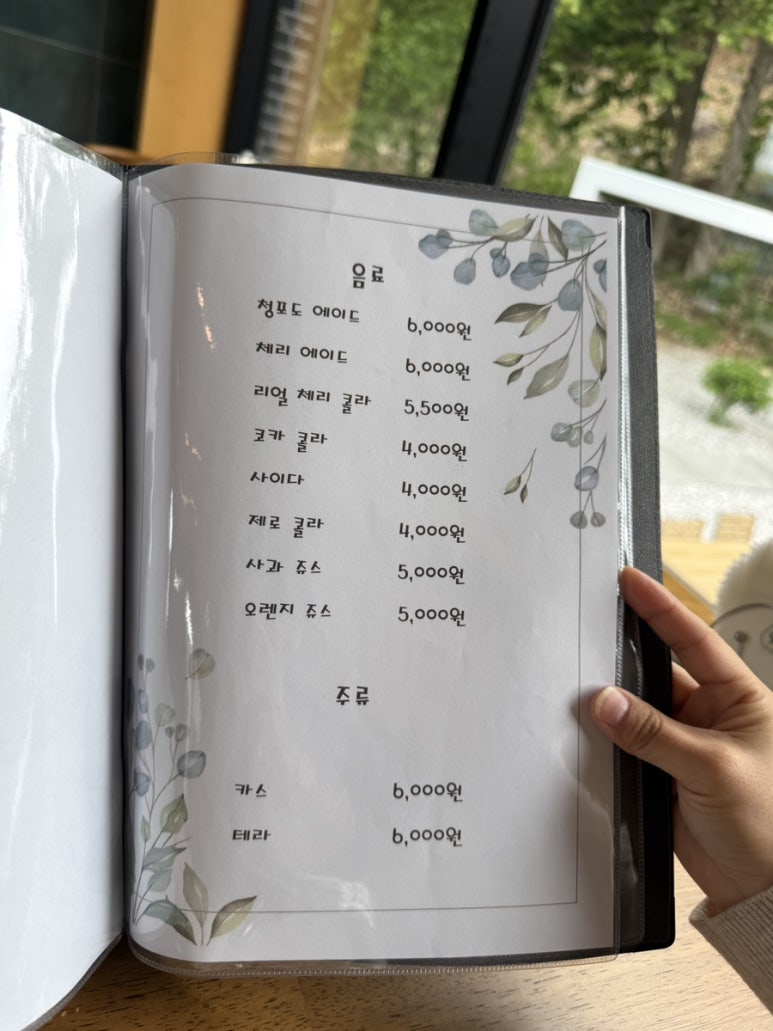 음료
청포도 에이드 6,000원
체리 에이드 6,000원
리얼 체리 콜라 5,500원
코카 콜라 4,000원
사이다 4,000원
제로 콜라 4,000원
사과 쥬스 5,000원
오렌지 쥬스 5,000원
주류
카스 6,000원
테라 6,000원